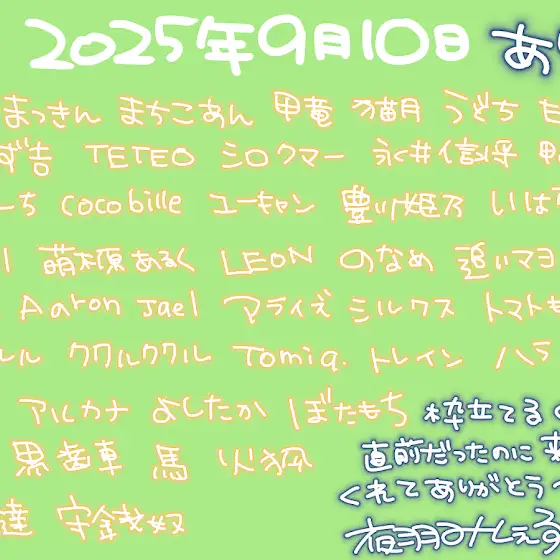 2025年9月10日 あ
まっきん まちこあん 甲竜 猫月 うどち
ず吉 TETEO シロクマー 永井信将
ーち cocobille ユーキャン 豊川姫乃 いは
萌木原あるく LEON のなめ 追いマヨ
Aaron Jael アライズ シルクス トマトも
レル ククルククル Tomiq. トレイン ハラ
アルカナ よしたか ぼたもち 枠立てるの
黒歯車 馬 火狐 直前だったのに
くれてありがとう
達 守銭奴